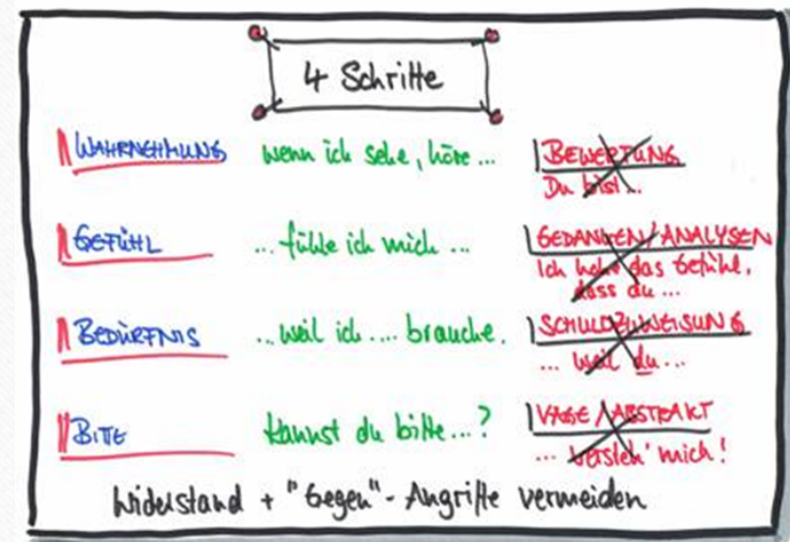 4 Schritte
WAHRNEHMUNG wenn ich sehe, höre ... BEWERTUNG
Du bist ...
GEFÜHL ... fühle ich mich ... GEDANKEN/ANALYSEN
Ich habe das Gefühl,
dass du ...
BEDÜRFNIS ... weil ich .... brauche. SCHULDZUWEISUNG
... weil du ...
BITTE kannst du bitte ...? VAGE/ABSTRAKT
... versteh' mich!
Widerstand + "Gegen"-Angriffe vermeiden